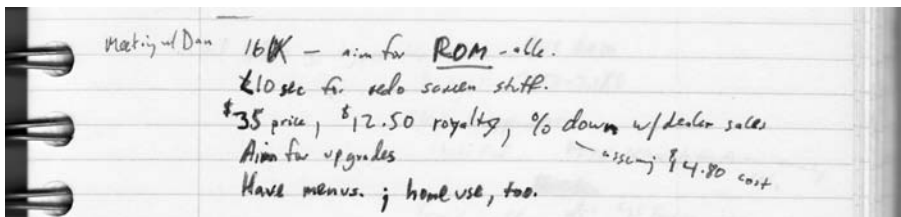 Meeting w/ Dan
16K – aim for ROM-able.
<10 sec for redo screen stuff.
$35 price, $12.50 royalty, % down w/ dealer sales
– assuming $4.80 cost
Aim for upgrades
Have menus. ; home use, too.